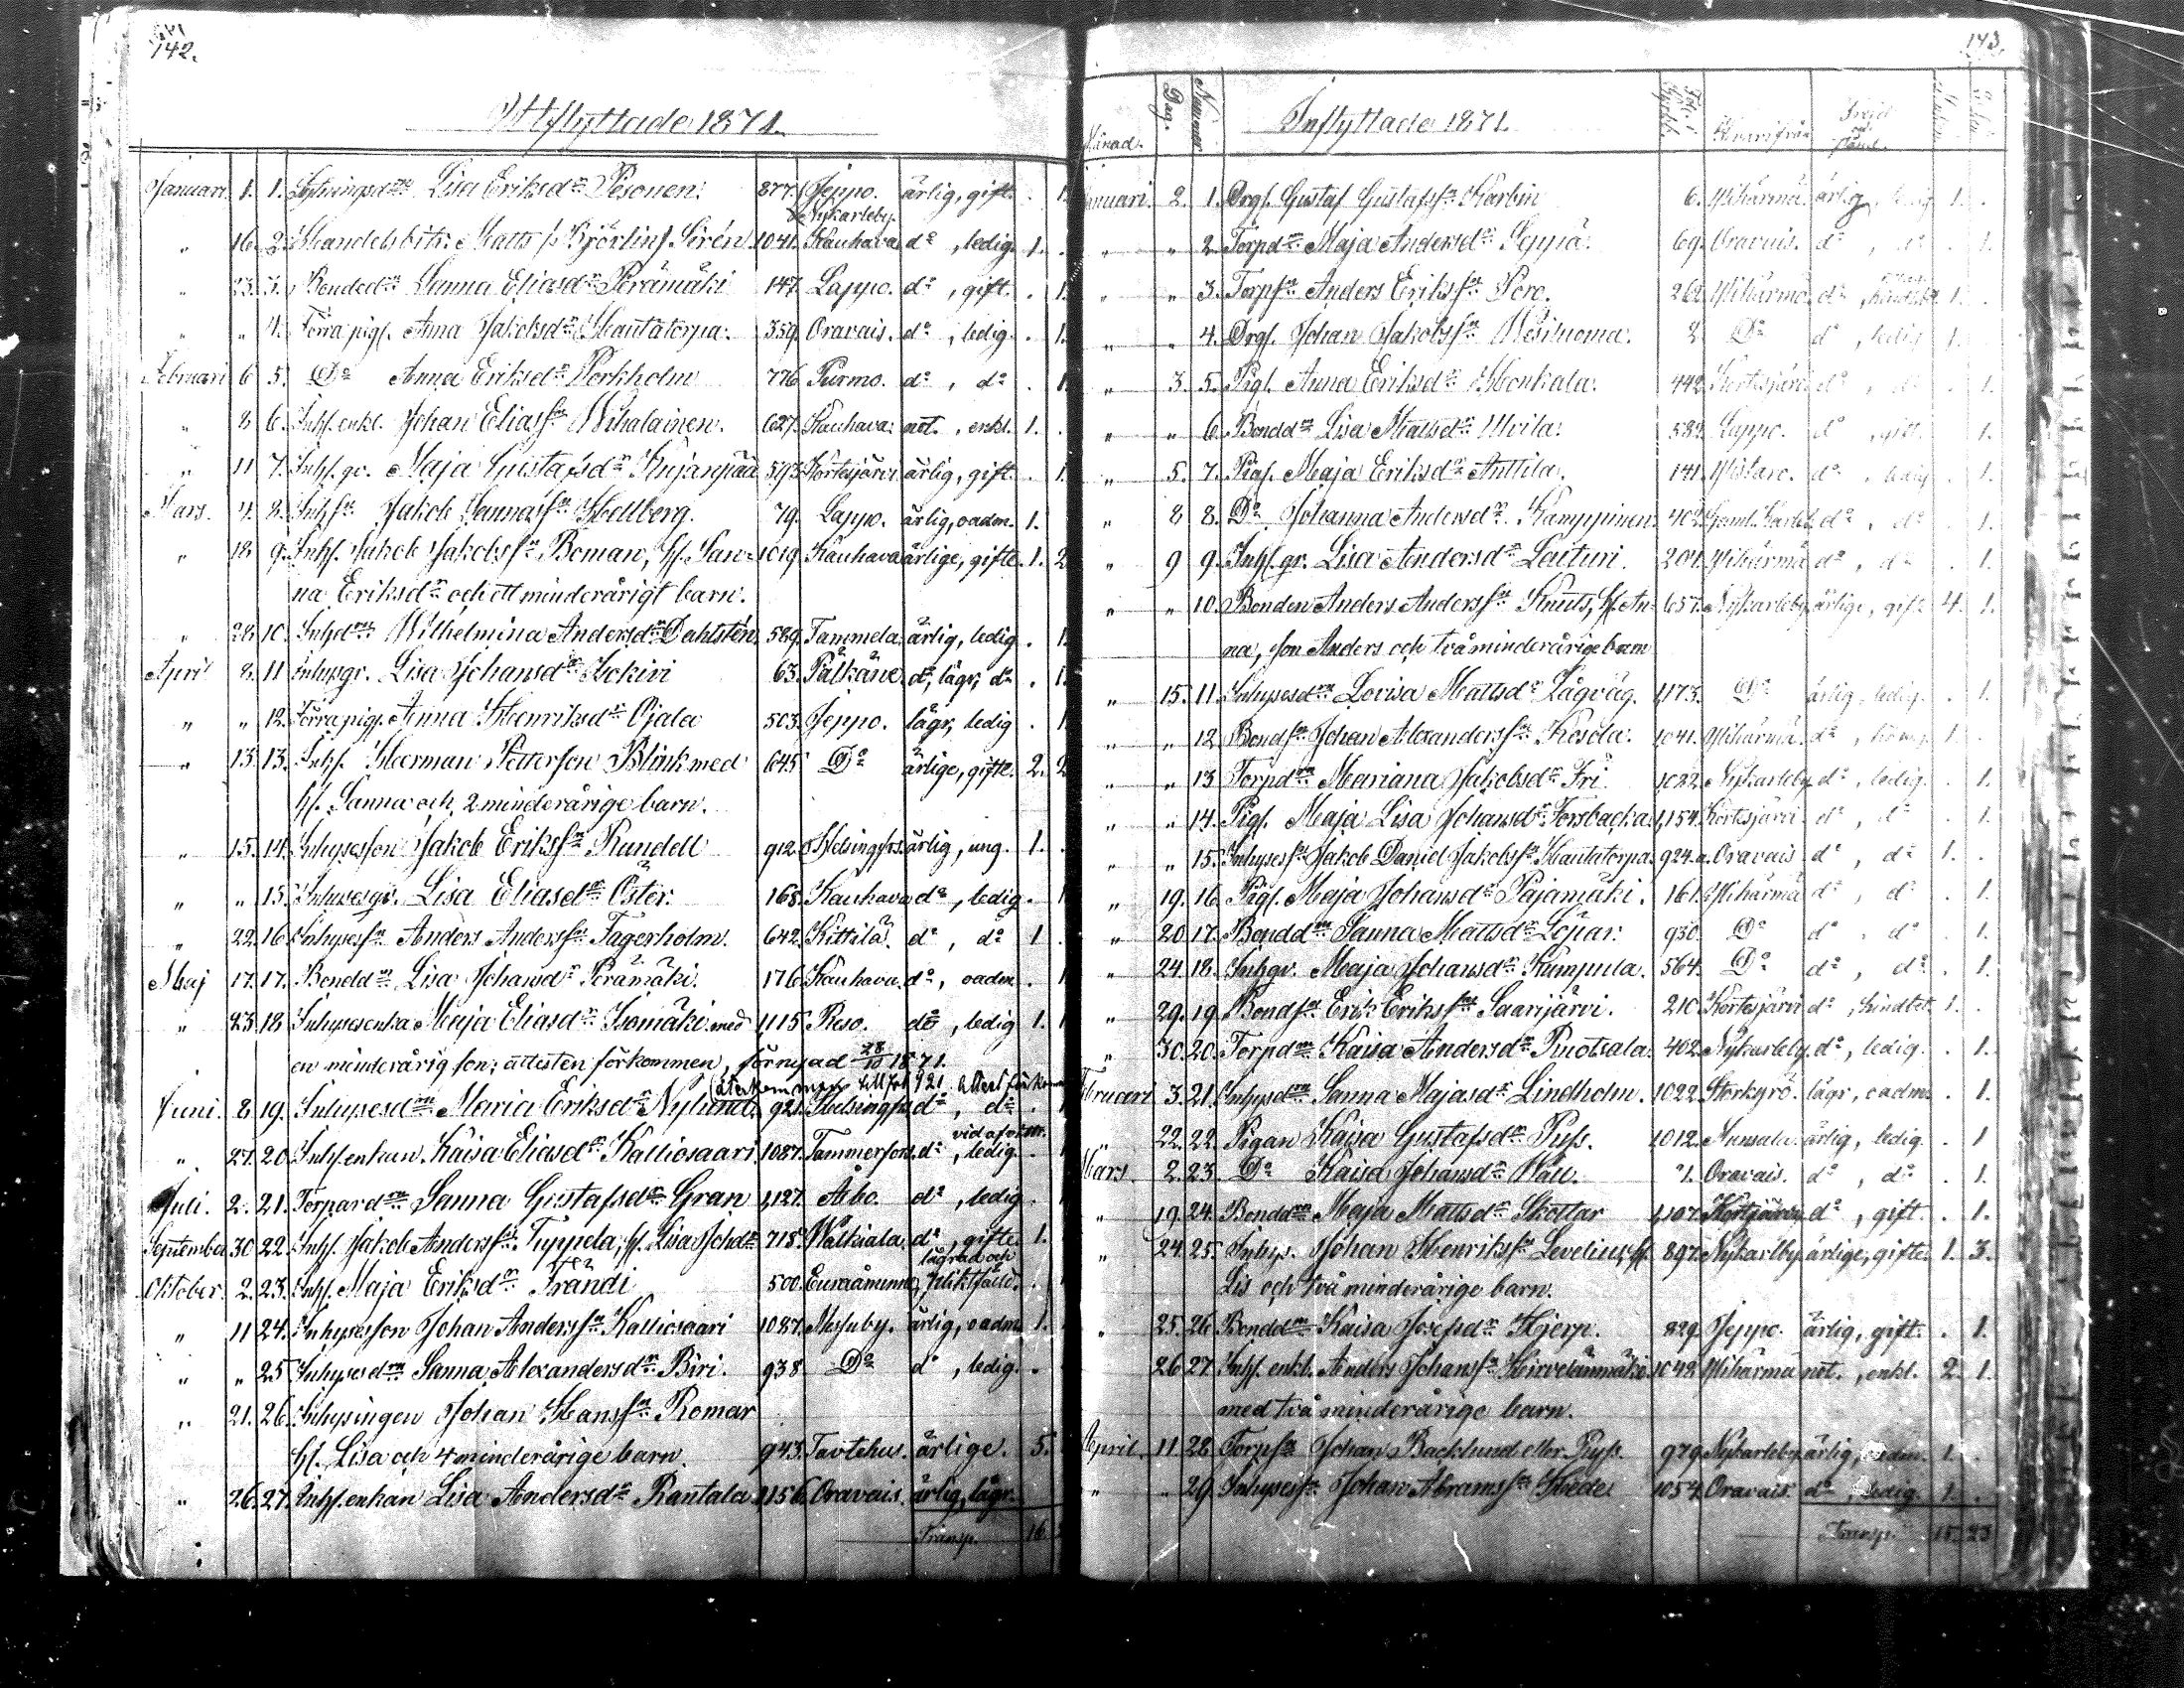 142.
Utflyttade 1871.
Januari. 1. 1. Inhysingsdrn Lisa Eriksdr Pesonen. 877. Jeppo. ärlig, gift. . 1.
Nykarleby.
" 16. 2. Matts Björlin Sirén 1041. Kauhava do, ledig. 1. .
" 23. 3. Bonddrn Sanna Eliasdr Perämäki 147. Lappo. do, gift. . 1.
" " 4. Förra pigf. Anna Jakobsdr Hautatorpa. 359. Oravais. do, ledig. . 1.
Februari 6 5. Do Anna Eriksdr Workholm 776 Purmo. do, do . 1.
" 8 6. Inhs. enkl. Johan Eliassn Wihalainen. 627. Kauhava. not., enkl. 1. .
" 11 7. Inhs. gv. Maja Gustafsdr Kujanpää 593. Kortesjärvi ärlig, gift. . 1.
Mars. 4. 8. Inhsn Jakob Sannasn Hellberg. 79. Lappo. ärlig, oadm. 1.
" 18 9. Inhs. Jakob Jakobssn Boman, h. San- 1019. Kauhava ärlige, gifte. 1. 2.
na Eriksdr och ett minderårigt barn.
" 28. 10. Inhdrn Wilhelmina Andersdr Dahlstén 589. Tammela. ärlig, ledig . 1.
April 8. 11 Inhysgv. Lisa Johansdr Isokivi 63. Pälkäne. do, lägr, do . 1.
" " 12. Förra pigs. Anna Henriksdr Ojala 503. Jeppo. lägr, ledig . 1
" 13. 13. Inhs. Herman Petterson Blink med 645 Do ärlige, gifte. 2. 2
h. Sanna och 2 minderårige barn.
" 15. 14. Inhysesson Jakob Erikssn Rundell 912. Helsingfrs. ärlig, ung. 1. .
" " 15. Inhysesgv. Lisa Eliasdr Öster. 168. Kauhava do, ledig. . 1
" 22. 16. Inhysessn Anders Anderssn Fagerholm. 642. Kittilä. do, do 1 .
Maj 17. 17. Bonddrn Lisa Johansdr Perämäki. 176. Kauhava. do, oadm. . 1
" 23. 18 Inhysesenka Maja Eliasdr Isomäki med 1,115 Reso. do, ledig 1. 1
en minderårig son; attesten förkommen, förnyad 28/10 1871.
Juni. 8 19. Inhysesdrn Maria Eriksdr Nylund 921. Helsingfrs do, do .
" 27. 20. Inhs. enkan Kaisa Eliasdr Kalliosaari 1087. Tammerfors. do, ledig. .
Juli. 2. 21. Torpardrn Sanna Gustafsdr Gran 1,127. Åbo. do, ledig. .
September 30 22. Inhs. Jakob Anderssn Tuppela, h. Lisa Johdr 718. Walkiala. do, gifte. 1.
Oktober. 2. 23. Inhs. Maja Eriksdr Frändi 500. Euraåminne, lägrad och
" 11 24. Inhysesson Johan Anderssn Kalliosaari 1087. Messuby. ärlig, oadm 1.
" " 25 Inhysesdrn Sanna Alexandersdr Biri. 938 Do do, ledig. .
" 21. 26. Inhysingen Johan Hanssn Romar
h. Lisa och 4 minderårige barn. 943. Tavtehus. ärlige. 5.
" 26. 27. Inhs. enkan Lisa Andersdr Rantala 1,156. Oravais. ärlig, lägr.
Transp. 16.
143.
Månad. Dag. Nummer Inflyttade 1871. Hvarifrån Frejd och stånd
Januari. 2. 1. Drgs. Gustaf Gustafssn Karbin 6. Ylihärmä. ärlig, ledig 1. .
" " 2. Torpdrn Maja Andersdr Seppä. 69. Oravais. do, do . 1.
" " 3. Torpsn Anders Erikssn Pero. 262. Ylihärmä do, 1. .
" " 4. Drgs. Johan Jakobssn Wesiluoma. 2. Do do, ledig 1. .
" 3. 5. Pigs. Anna Eriksdr Honkala. 442. Kortesjärvi do, do . 1.
" " 6. Bonddrn Lisa Mattsdr Ulvila. 582. Lappo. do, gift. . 1.
" 5. 7. Pigs. Maja Eriksdr Anttila. 141. Ylistaro. do, ledig . 1.
" 8 8. Do Johanna Andersdr Kamppinen. 402. Gaml. Karleb. do, do . 1.
" 9 9. Inhs. gv. Lisa Andersdr Laituri. 201. Ylihärmä do, do . 1.
" " 10. Bonden Anders Anderssn Knuts, h. An- 657. Nykarleby ärlige, gift 4. 1.
na, son Anders och två minderårige barn
" 15. 11. Inhysesdrn Lovisa Mattsdr Lågväg. 1,173. Do ärlig, ledig. . 1.
" " 12 Bondsn Johan Alexanderssn Kosola. 1041. Ylihärmä. do, 1. .
" " 13 Torpdrn Mariana Jakobsdr Fri. 1082. Nykarleby do, ledig. . 1.
" " 14. Pigs. Maja Lisa Johansdr Forsbacka. 1,154. Kortesjärvi do, do . 1.
" " 15. Inhysessn Jakob Daniel Jakobssn Hautatorpa. 924.a. Oravais do, do 1. .
" 19. 16. Pigs. Maja Johansdr Pajamäki. 161. Ylihärmä do, do . 1.
" 20 17. Bonddrn Sanna Mattsdr Löpar. 930. Do do, do . 1.
" 24 18. Inhgv. Maja Johansdr Kumpula. 564. Do do, do . 1.
" 29. 19. Bondsn Erik Erikssn Saarijärvi. 210. Kortesjärvi do, hindlöt. 1. .
" 30. 20. Torpdrn Kaisa Andersdr Ruotsala. 402. Nykarleby. do, ledig. . 1.
Februari 3. 21. Inhysdrn Sanna Majasdr Lindholm. 1022. Storkyrö. lägr, oadm. . 1.
" 22. 22. Pigan Kaisa Gustafsdr Puss. 1012. Munsala. ärlig, ledig. . 1
Mars. 2. 23. Do Kaisa Johansdr Wau. 1. Oravais. do, do . 1.
" 19. 24. Bonddrn Maja Mattsdr Skottar 1,107. Kortjärvi do, gift. . 1.
" 24. 25. Inhys. Johan Henrikssn Levelius, h. 897. Nykarlby. ärlige, gifte. 1. 3.
Lis och två minderårige barn.
" 25. 26. Bonddrn Kaisa Josepsdr Hjerp. 829. Jeppo. ärlig, gift. . 1.
26. 27. Inhs. enkl. Anders Johanssn Hirvelänmäki 1048. Ylihärmä not., enkl. 2. 1.
med två minderårige barn.
April 11. 28. Torpsn Johan Backlund eller Puss. 979. Nykarleby. ärlig, oadm. 1. .
" " 29. Inhysessn Johan Abramssn Hede 1054. Oravais. do, ledig. 1. .
Transp. 15. 23